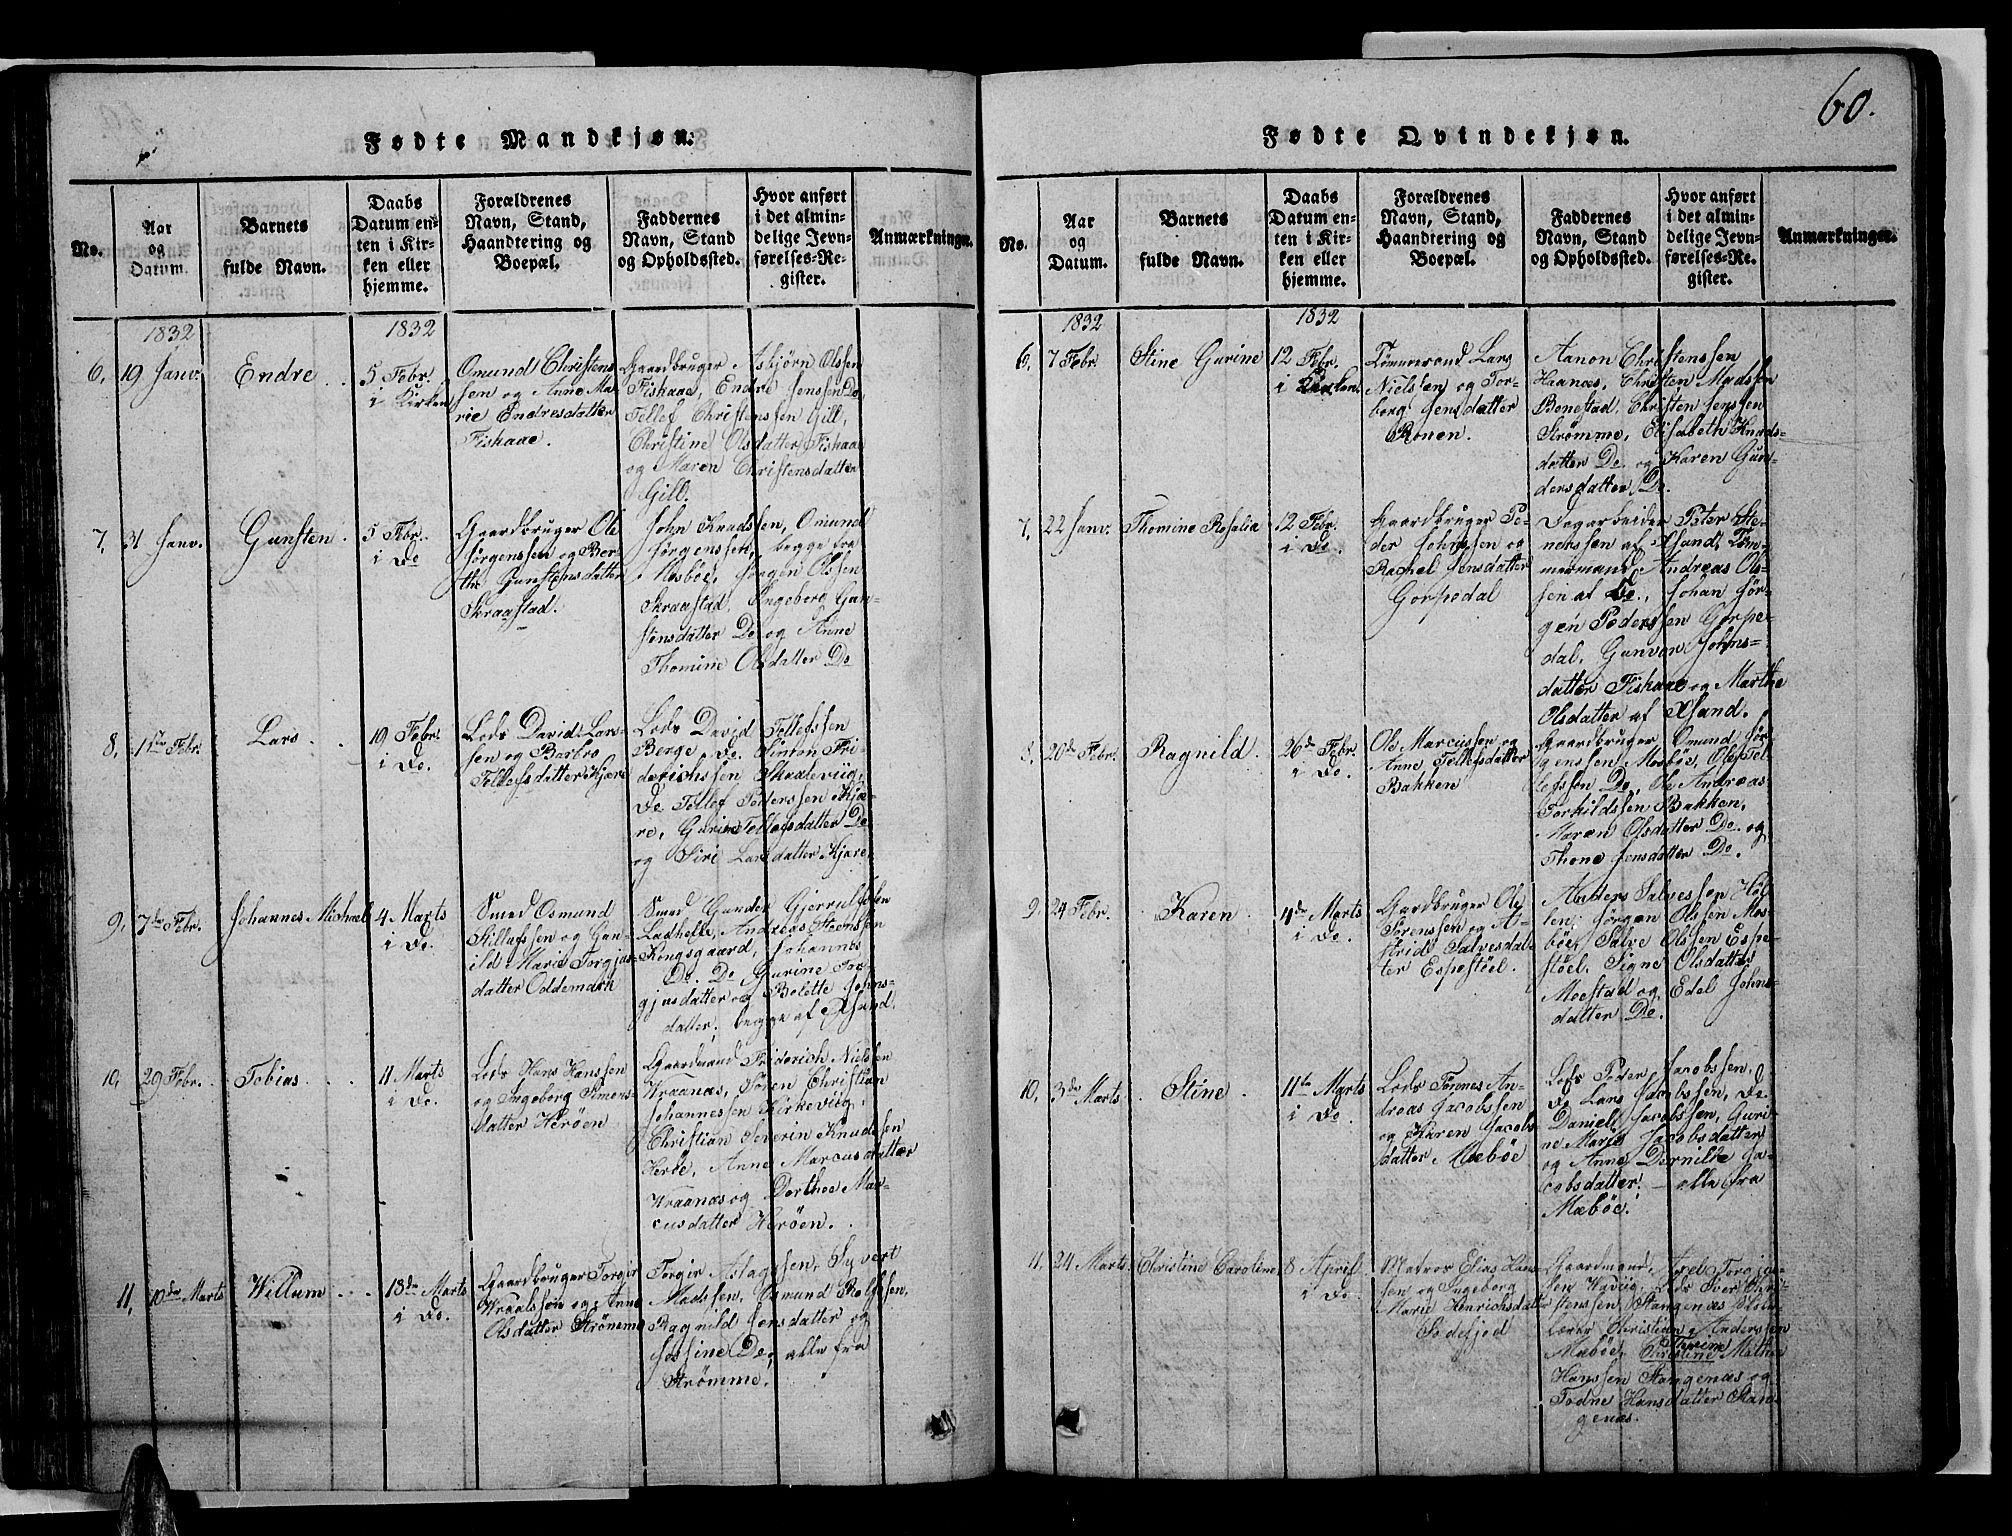 60.
Fødte Mandkjøn.
No.
Aar
og
Datum.
Barnets
fulde Navn.
Daabs
Datum en-
ten i Kir-
ken eller
hjemme.
Forældrenes
Navn, Stand,
Haandtering og
Boepæl.
Faddernes
Navn, Stand
og Opholdssted.
Hvor anført
i det almin-
delige Jevn-
førelses-Re-
gister.
Anmærkninger.
1832
1832
6, 19 Janv.
Endre
5 Febr.
i Kirken
Omund Christens
sen og Anne Ma
rie Endresdatter
Fiskaae.
Gaardbruger Asbjörn Olssen
Fiskaae, Endre Jenssen Do,
Tellef Christenssen Gill,
Christine Olsdatter Fiskaae
og Maren Christensdatter
Gill.
7, 31 Janv.
Gunsten
5 Febr.
i Do
Gaardbruger Ole
Jörgenssen og Ber
the Gunstensdatter
Skraastad.
John Knudssen, Omund
Jörgenssen, begge fra
Mosböe, Jörgen Olssen
Skraastad, Ingeborg Gun-
stensdatter Do og Anne
Thomine Olsdatter Do
8, 1ste Febr.
Lars
19 Febr.
i Do.
Lods David Lars-
sen og Barbro
Tellefsdatter Kjære
Lods David Tellefssen
Berge, Do. Simon Fri
derichssen Skaaleviig,
Do Tellef Pederssen Kjæ-
re, Gurine Tellefsdatter Do
og Siri Larsdatter Kjære.
9, 7de Febr.
Johannes Michael
4 Marts
i Do.
Smed Osmund
Stillufssen og Gun-
ild Marie Torgjus-
datter Oddemark
Smed Gunder Gjerrulfssen
Ladhelle, Andreas Steenssen
Kongsgaard, Johannes
Do. Do, Gurine Tor
gjusdatter og Bolette Johns-
datter, begge af Xsand.
10, 29 Febr.
Tobias
11 Marts
i Do.
Lods Hans Hanssen
og Ingeborg Simons-
datter Heröen
Gaardmand Friderich Nielssen
Kraanæs, Sören Christian
Johannessen Kirkeviig,
Christian Severin Knudssen
Heröe, Anne Marcusdatter
Kraanæs og Dorthea Mar-
cusdatter Heröen.
11, 10de Marts
Willum
18de Marts
i Do.
Gaardbruger Torgir
Wraalssen og Anne
Olsdatter Strömme
Torgir Aslagssen, Syvert
Madssen, Osmund Rolfssen,
Ragnild Jensdatter og
Jossine Do, alle fra
Strömme.
Fødte Qvindekjøn.
No.
Aar
og
Datum.
Barnets
fulde Navn.
Daabs
Datum en-
ten i Kir-
ken eller
hjemme.
Forældrenes
Navn, Stand,
Haandtering og
Boepæl.
Faddernes
Navn, Stand
og Opholdssted.
Hvor anført
i det almin-
delige Jevn-
førelses-Re-
gister.
Anmærkninger.
1832
1832
6, 7 Febr.
Stine Gurine
12 Febr.
i Kirken
Tömmermand Lars
Nielssen og Tor-
borg Jensdatter
Ronen.
Aanon Christenssen
Haanæs, Christen Madssen
Bonestad, Christen Jenssen
Strömme, Elisabeth Knuds-
datter Do. og Karen Gun-
dersdatter Do.
7, 22 Janv.
Thomine Rosalia
12 Febr.
i Do.
Gaardbruger Pe-
der Johnssen og
Rachel Jensdatter
Gorpedal
Dagarbeider Peter
nenssen af Xsand, Töm-
mermand Andreas Ols-
sen af Do., Johan Jör-
gen Pederssen Gorpe-
dal, Gunvor Johns-
datter Fiskaae og Marthe
Olsdatter af Xsand.
8, 20de Febr.
Ragnild
26de Febr.
i Do.
Ole Marcussen og
Anne Tellefsdatter
Bakken
Gaardbruger Omund Jör
genssen Mosböe, Ole Tel-
lefssen Do, Ole Andreas
Torkildssen Bakken,
Maren Olsdatter Do. og
Thone Jensdatter Do.
9, 24 Febr.
Karen
4de Marts
i Do.
Gaardbruger Ole
Sörenssen og A-
strid Salvesdat-
ter Espestöel.
Anders Salvessen Höl-
len, Jörgen Olssen Mos-
böe, Salve Olssen Espe-
stöel, Signe Olsdatter
Moestad og Edel Johns-
datter Do.
10, 3de Marts
Stine
11te Marts
i Do
Lods Tönnes An-
dreas Jacobssen
og Karen Jacobs
datter Mæböe
Lods Peder Jacobssen,
Do Lars Jacobssen, Do.
Daniel Jacobssen, Guri-
ne Marie Jacobsdatter
og Anne Pernille Ja-
cobsdatter, alle fra
Mæböe.
11, 24 Marts
Christine Caroline
8 April
i Do
Matros Elias Hans
sen og Ingeborg
Marie Henrichsdatter
Gaardmand Axel Torgju-
sen Lods Iver Chri-
stenssen, Stangenæs
Christian Anderssen
Mæböe, Christine Mathea
Hanssen Stangenæs og
Todne Hansdatter Stan-
genæs.